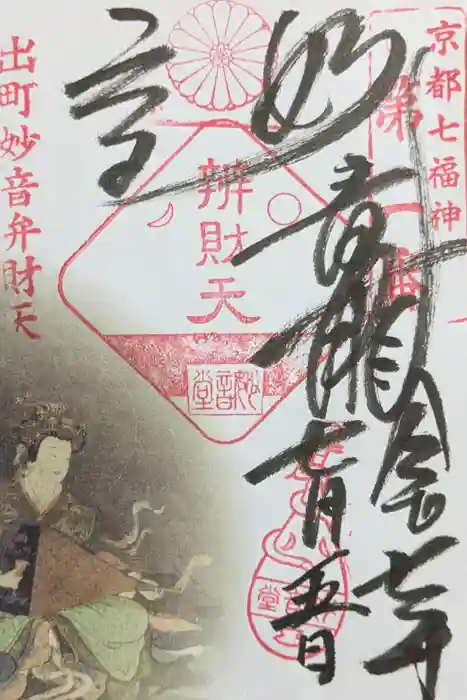 京都七福神
第一番
妙音
七年
七月五日
辨財天
妙音堂
出町妙音弁財天